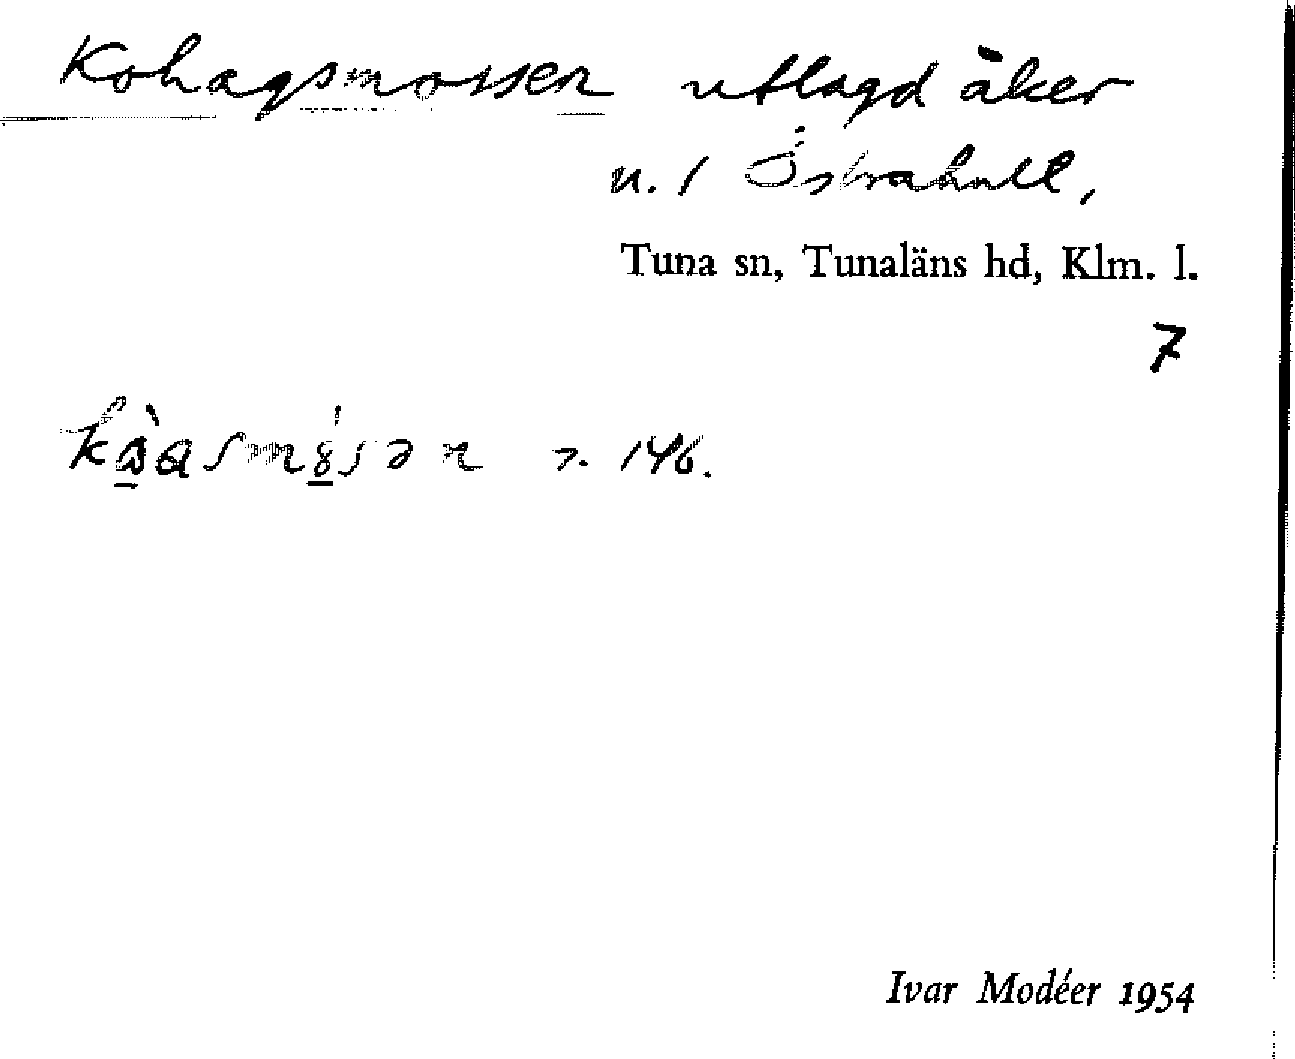 Kohagsmossen utlagd åker
u. / Östrahult,
Tuna sn, Tunaläns hd, Klm. l.
7
146.
Ivar Modéer 1954